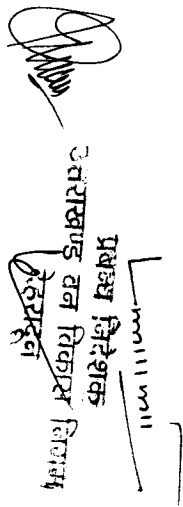 प्रबन्ध निदेशक
उत्तराखण्ड वन विकास निगम
देहरादून